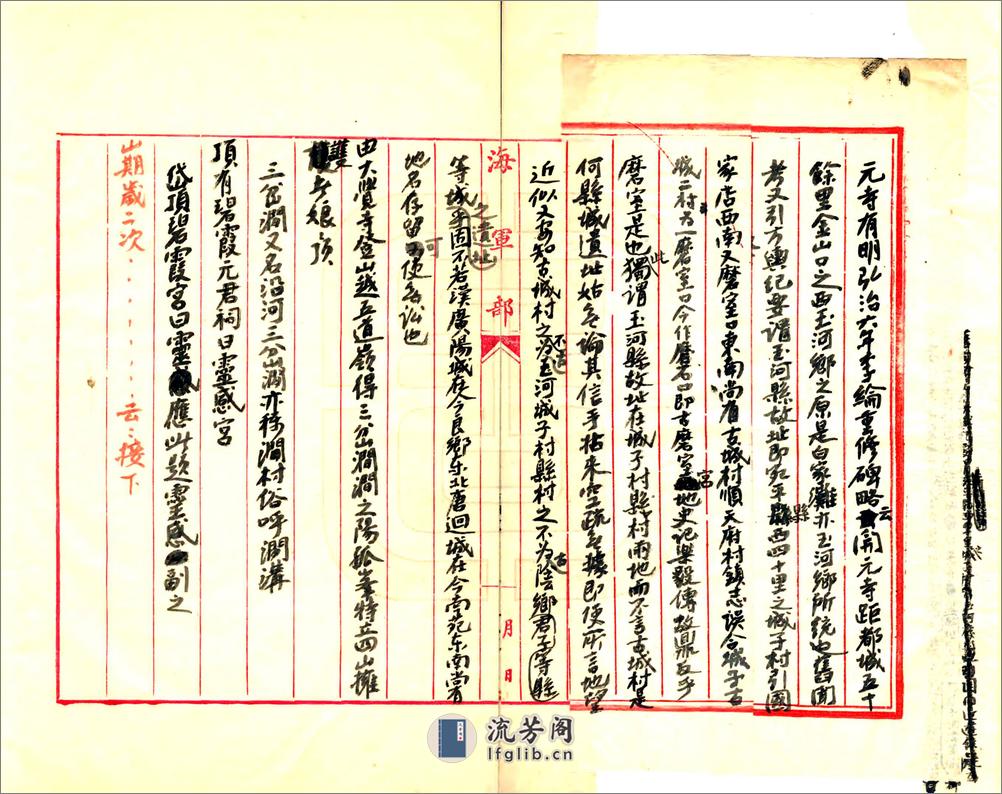 元寺有明弘治六年李綸重修碑略云開元寺距都城五十
餘里金山口之西玉河鄉之原是白家灘亦玉河鄉所統也舊聞
考又引方輿紀要謂玉河縣故址即宛平縣西四十里之城子村引圖
家店西南又磨室口東南尚有古城村順天府村鎮志誤合城子古
城二村为一磨室口今作磨石口即古磨室宮地史記樂毅傳故鼎反乎
磨室是也獨謂玉河縣故址在城子村縣村兩地而不言古城村是
何縣城遺址姑無論其信手拈來空疏無據即使所言地望
近似又安知古城村之不为古玉河城子村縣村之不为古陰鄉君子等縣
海軍部
月 日
等城之遺址乎固不若漢廣陽城在今良鄉东北唐迴城在今南苑东南尚有
地名存留可使無訟也
由大覺寺登山越五道嶺得三岔澗澗之陽孤峯特立四山擁
雙乡娘頂
三岔澗又名沿河三岔澗亦稱澗村俗呼澗溝
頂有碧霞元君祠曰靈感宮
岱頂碧霞宮曰靈應此題靈感副之
山期歲二次……云云接下
流芳阁
lfglib.cn